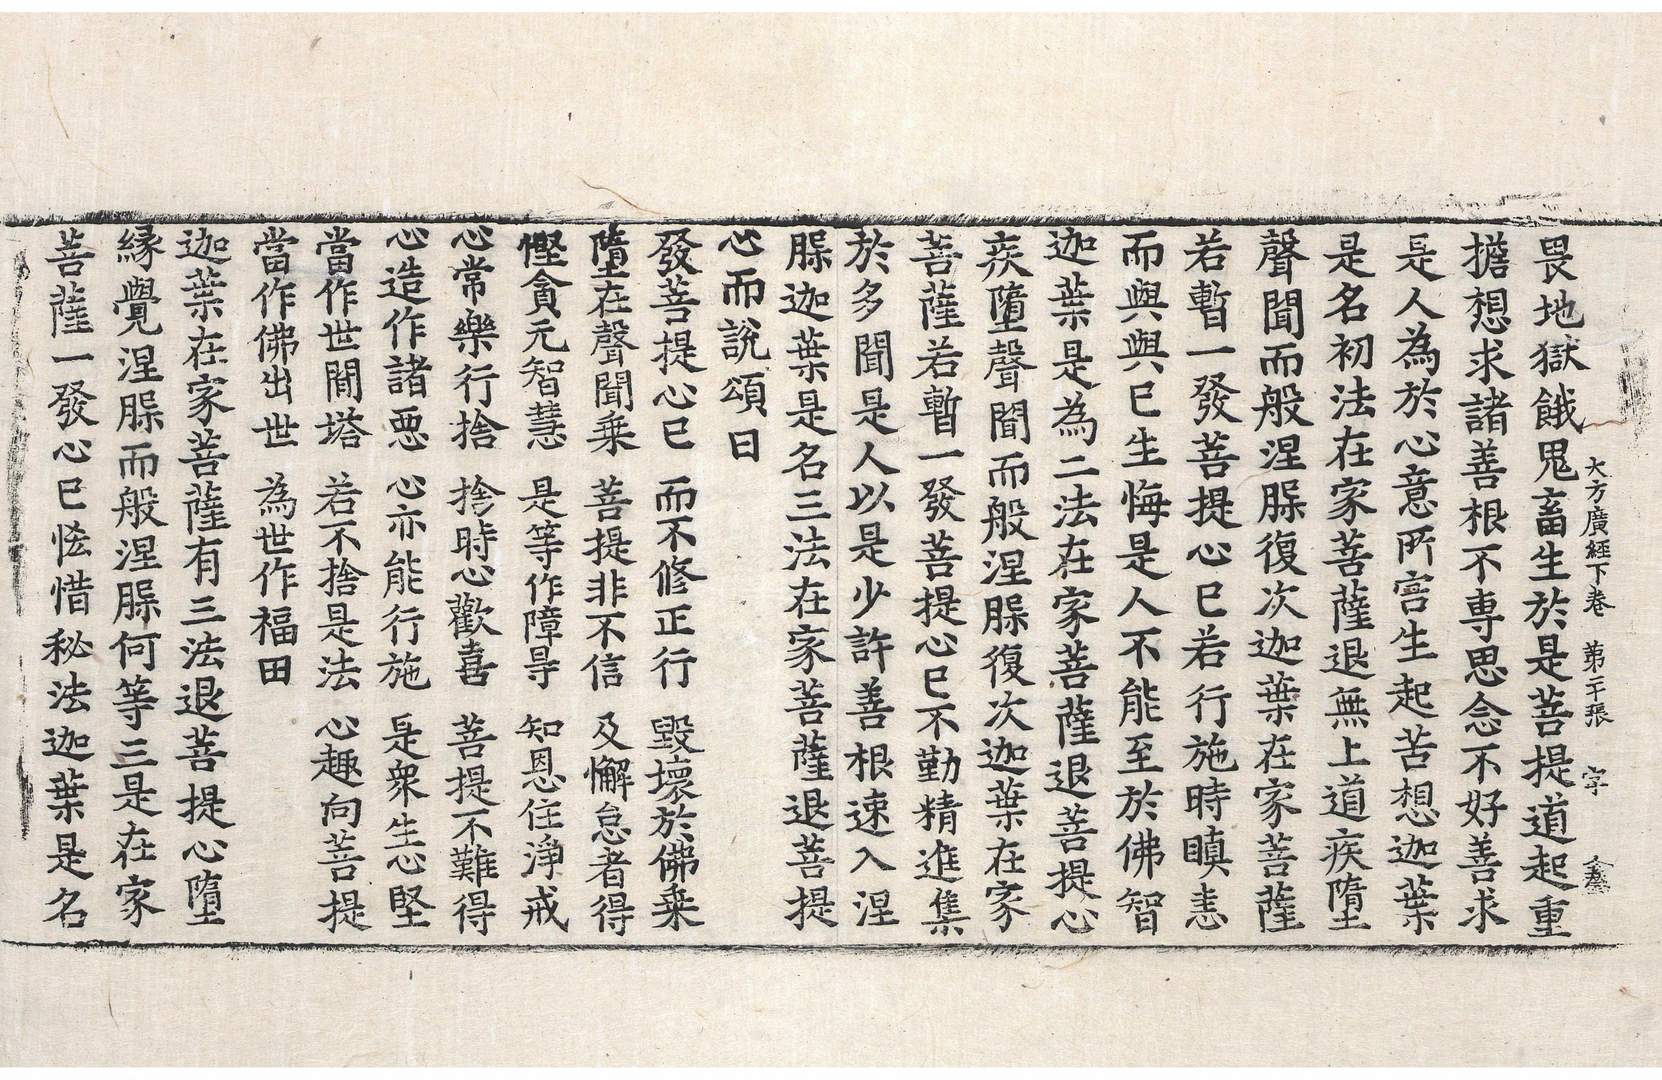 大方廣經下卷 第二十張 字
畏地獄餓鬼畜生於是菩提道起重
擔想求諸善根不專思念不好善求
是人為於心意所害生起苦想迦葉
是名初法在家菩薩退無上道疾墮
聲聞而般涅槃復次迦葉在家菩薩
若暫一發菩提心已若行施時瞋恚
而與與已生悔是人不能至於佛智
迦葉是為二法在家菩薩退菩提心
疾墮聲聞而般涅槃復次迦葉在家
菩薩若暫一發菩提心已不勤精進集
於多聞是人以是少許善根速入涅
槃迦葉是名三法在家菩薩退菩提
心而說頌曰
發菩提心已 而不修正行 毀壞於佛乗
墮在聲聞乗 菩提非不信 及懈怠者得
慳貪无智慧 是等作障㝵 知恩住淨戒
心常樂行捨 捨時心歡喜 菩提不難得
心造作諸悪 心亦能行施 是衆生心堅
當作世間塔 若不捨是法 心趣向菩提
當作佛出世 為世作福田
迦葉在家菩薩有三法退菩提心墮
緣覺涅槃而般涅槃何等三是在家
菩薩一發心已恡惜秘法迦葉是名